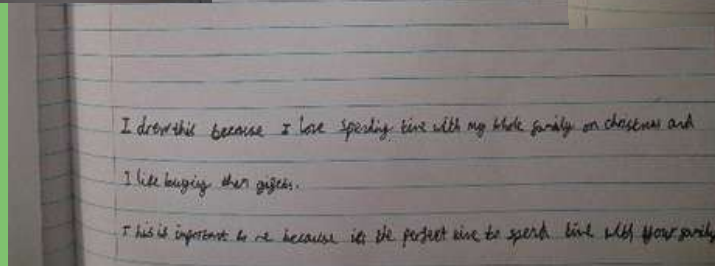 I drew this because I love spending time with my whole family on christmas and
I like buying them gifts.
This is important to me because its the perfect time to spend time with your family